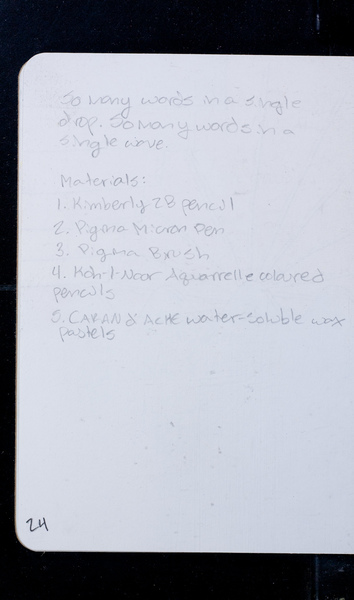 So many words in a single
drop. So many words in a
single wave.
Materials:
1. Kimberly 2B pencil
2. Pigma Micron Pen
3. Pigma Brush
4. Koh-I-Noor Aquarrelle coloured
pencils
5. CARAN d'ACHE water-soluble wax
pastels
24